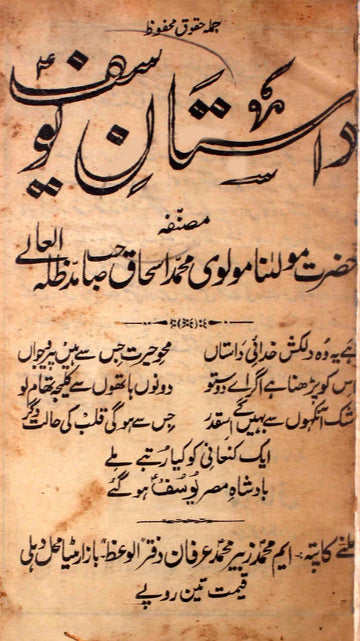 جملہ حقوق محفوظ
داستانِ یوسفؑ
مصنفہ
حضرت مولٰنا مولوی محمد اسحاق صاحب مدظلہ العالے
ہے یہ وہ دلکش خدائی داستاں
محو حیرت جس سے ہیں پیر و جواں
اس کو پڑھنا ہے اگر اے دوستو
دونوں ہاتھوں سے کلیجہ تھام لو
اشک آنکھوں سے بہیں گے اسقدر
جس سے ہوگی قلب کی حالت دگر
ایک کنعانی کو کیا رتبے ملے
بادشاہِ مصر یوسفؑ ہو گئے
ملنے کا پتہ:- ایم محمد زبیر محمد عرفان دفتر "الوعظ" بازار مٹیا محل دہلی
قیمت تین روپے